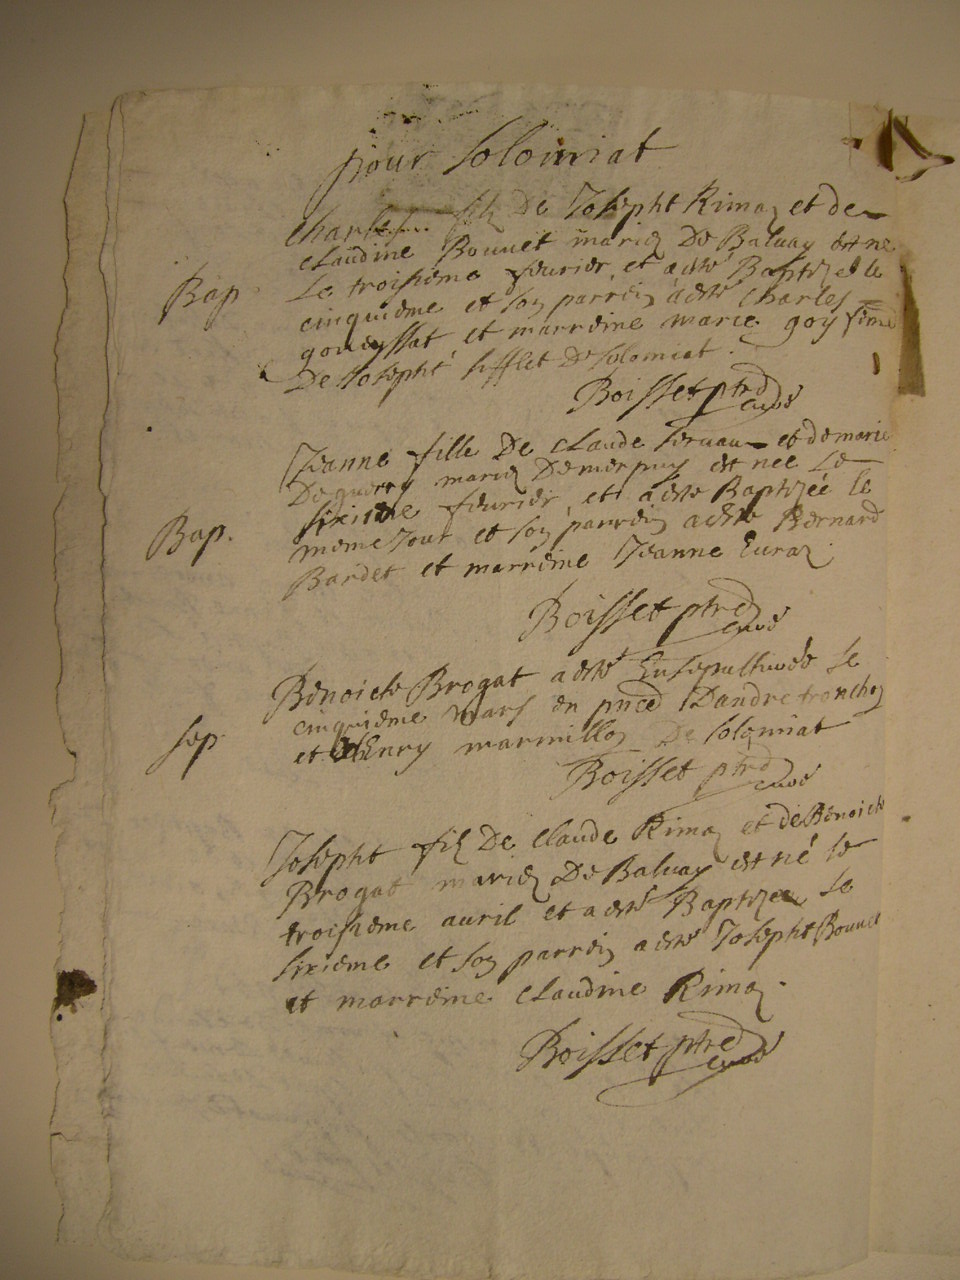 pour Solomiat
Charles filz De Josepht Rimaz et de
Claudine Bouuet mariez De Baluay est ne
Bap
Le troisieme feurier, et a esté Baptizé le
cinquieme et son parrein a esté Charles
goueyssat et marreine marie goy feme
De Josepht sifflet De Solomiat.
Boisset ptre
curé
Jeanne fille De Claude seruau et de marie
De guerry mariez De merpuy est nee Le
sixieme feurier, et a esté Baptizée le
Bap.
meme Jour et son parrein a esté Bernard
Bardet et marreine Jeanne Euraz.
Boisset ptre
curé
Benoicte Brogat a esté Ensepulturée le
cinquieme mars en pnce D'andre tronchon
Sep
et Henry marmillon De Solomiat
Boisset ptre
curé
Josepht filz De Claude Rimaz et de Benoicte
Brogat mariez De Baluay est né le
troisieme auril et a esté Baptizee le
sixieme et son parrein a esté Josepht Bouuet
et marreine Claudine Rimaz.
Boisset ptre
curé